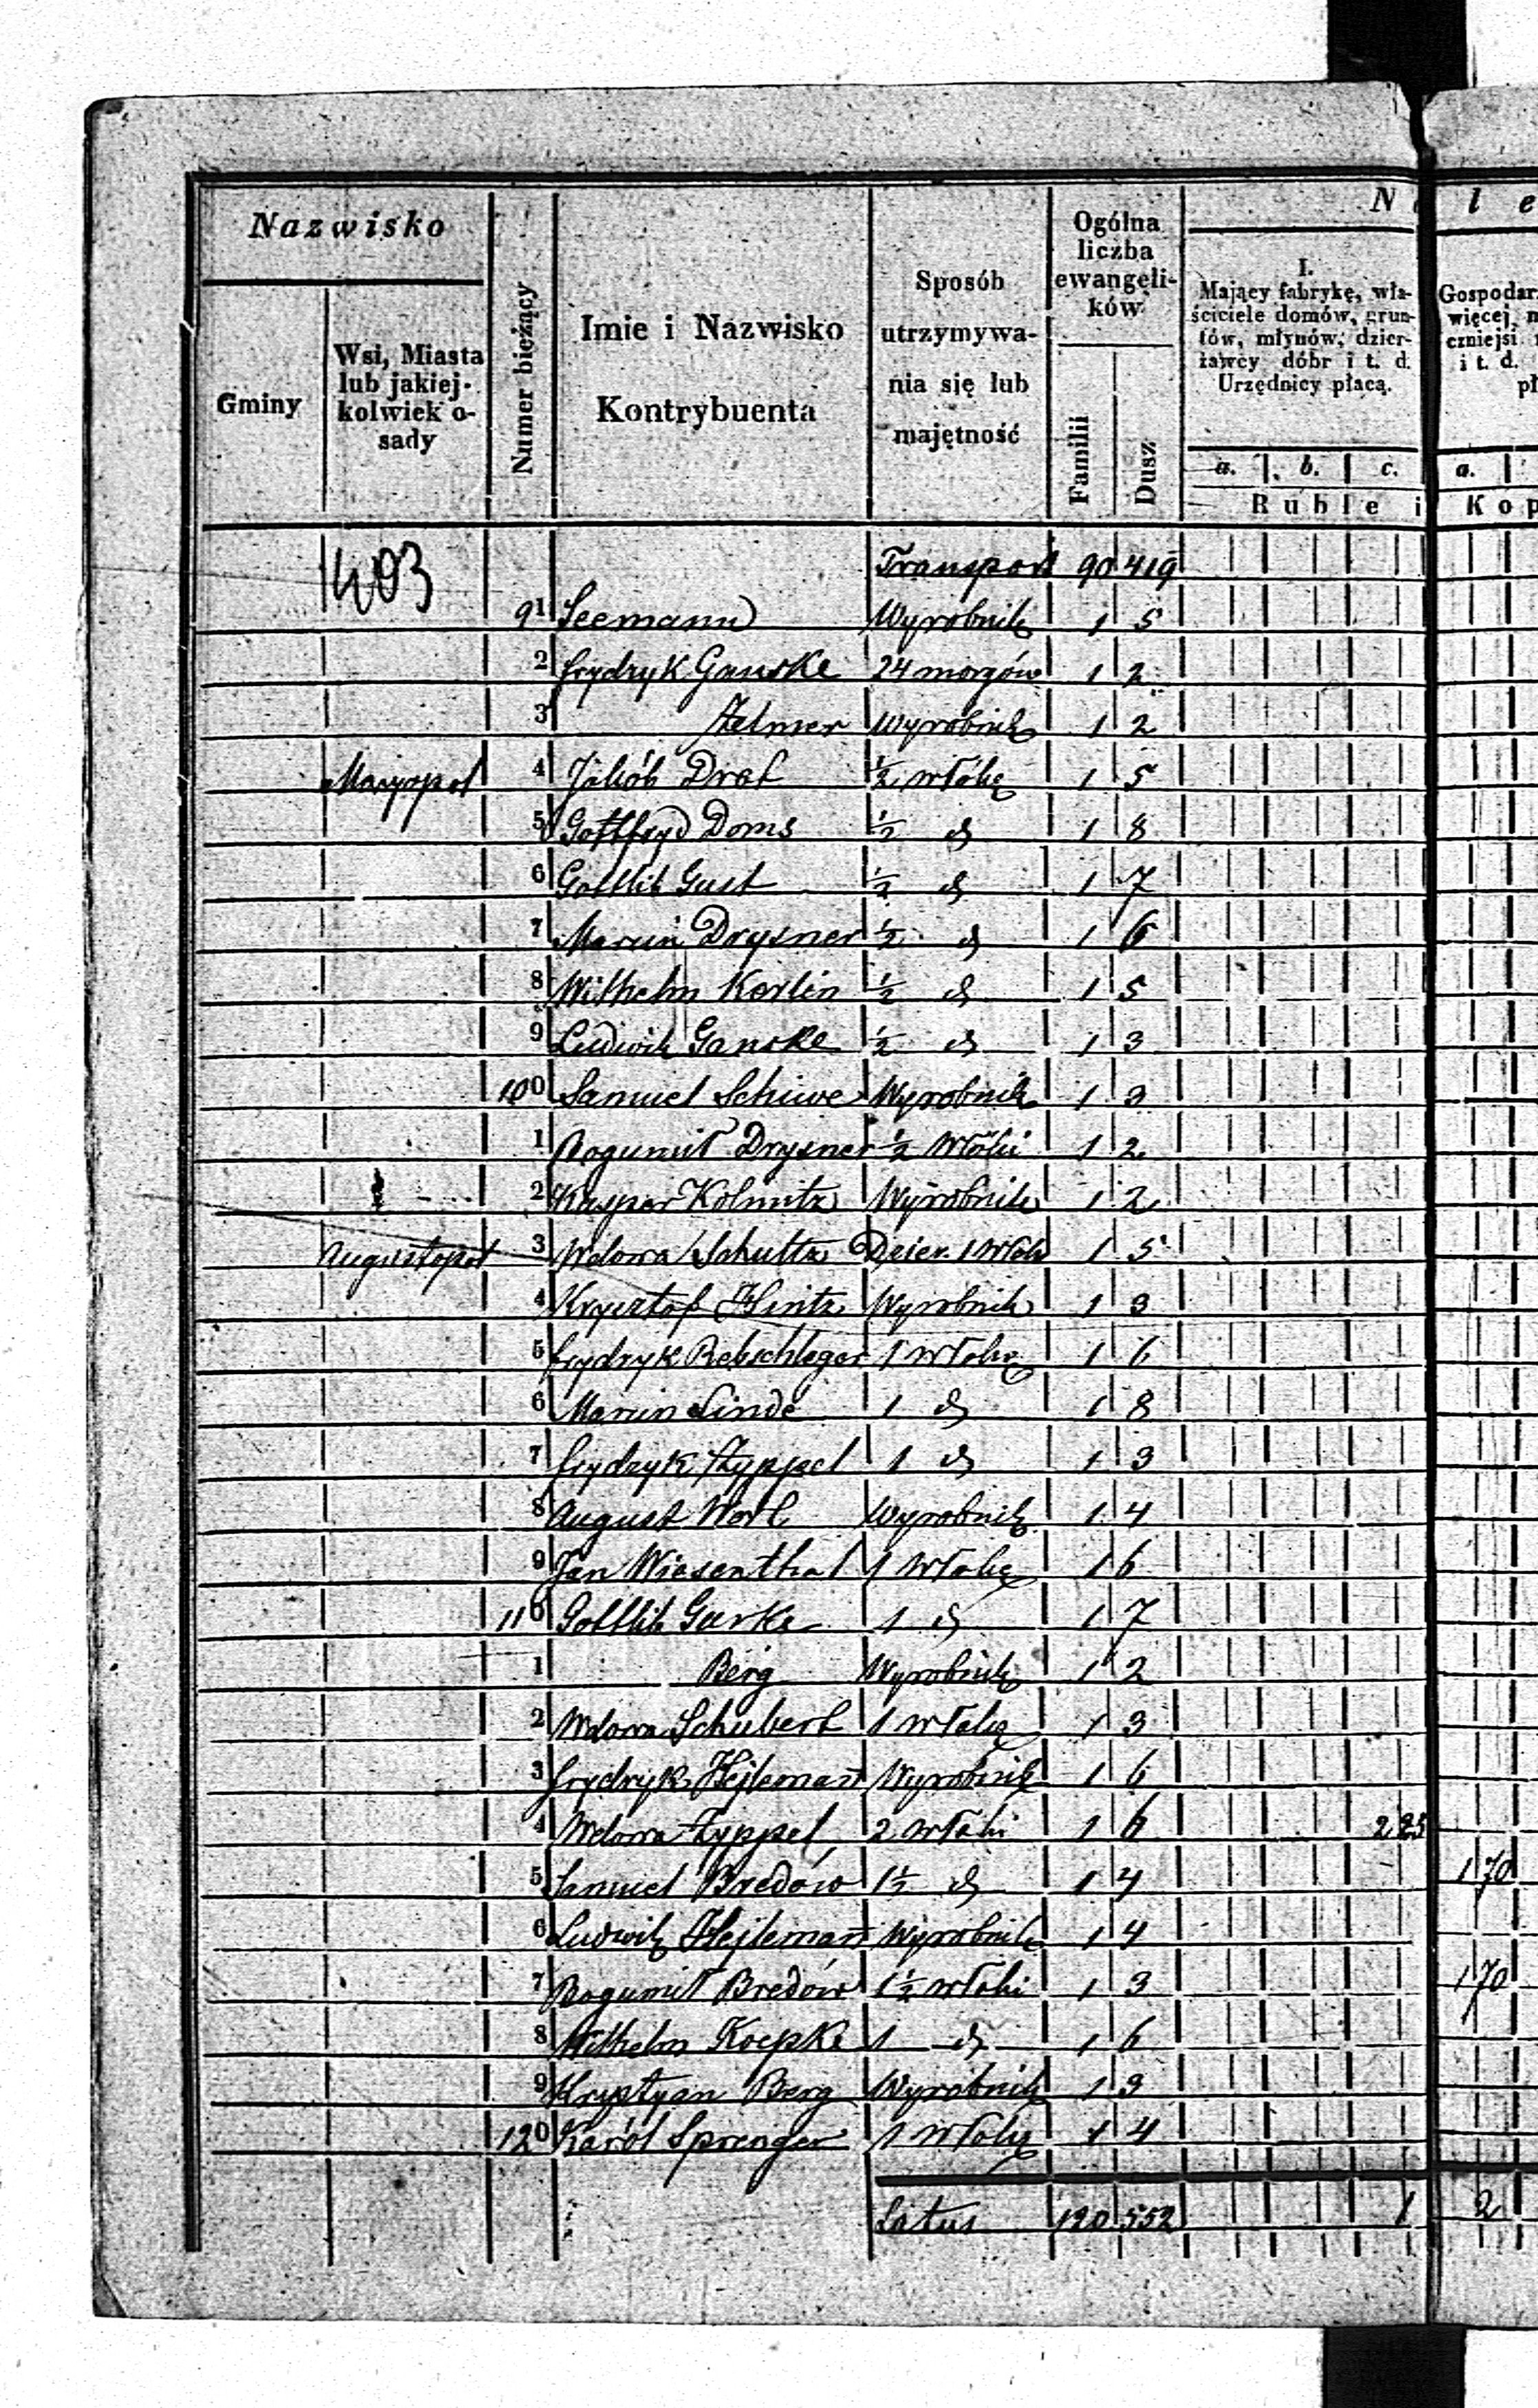 Nazwisko
Gminy
Wsi, Miasta
lub jakiej-
kolwiek o-
sady
Numer bieżący
Imie i Nazwisko
Kontrybuenta
Sposób
utrzymywa-
nia się lub
majętność
Ogólna
liczba
ewangeli-
ków
Familii
Dusz
N l e
I.
Mający fabrykę, wła-
ściciele domów, grun-
tów, młynów, dzier-
żawcy dóbr i t. d.
Urzędnicy płacą.
a. b. c.
Ruble i
Gospodar
więcej, m
czniejsi
i t. d.
pł
a.
Kop
403
Transport 90 419
91 Seemann Wyrobnik 1 5
2 Frydryk Ganske 24 morgów 1 2
3 Zelmer Wyrobnik 1 2
Maryopol 4 Jakób Drat ½ włókę 1 5
5 Gottfryd Doms ½ d 1 8
6 Gottlib Gust ½ d 1 7
7 Marcin Drysner ½ d 1 6
8 Wilhelm Korlin ½ d 1 5
9 Ludwik Ganske ½ d 1 3
100 Samuel Schiwe Wyrobnik 1 3
1 Bogumił Drysner ½ włóki 1 2
2 Kasper Kolmitz Wyrobnik 1 2
Augustopol 3 Wdowa Schultz Dzier. 1 włók 1 5
4 Krysztof Hintz Wyrobnik 1 3
5 Frydryk Rebschleger 1 włókę 1 6
6 Marcin Linde 1 d 1 8
7 Frydryk Zyppel 1 d 1 3
8 August Worl Wyrobnik 1 4
9 Jan Wiesenthal 1 włókę 1 6
110 Gottlib Gurke 1 d 1 7
1 Berg Wyrobnik 1 2
2 Wdowa Schubert 1 włókę 1 3
3 Frydryk Hejleman Wyrobnik 1 6
4 Wdowa Zyppel 2 włóki 1 6 2 25
5 Samuel Bredów 1½ d 1 4 1 70
6 Ludwik Hejleman Wyrobnik 1 4
7 Bogumił Bredów 1½ włóki 1 3 1 70
8 Wilhelm Koepke 1 d 1 6
9 Krystyan Berg Wyrobnik 1 3
120 Karól Sprenger 1 włókę 1 4
Latus 120 552 1 2